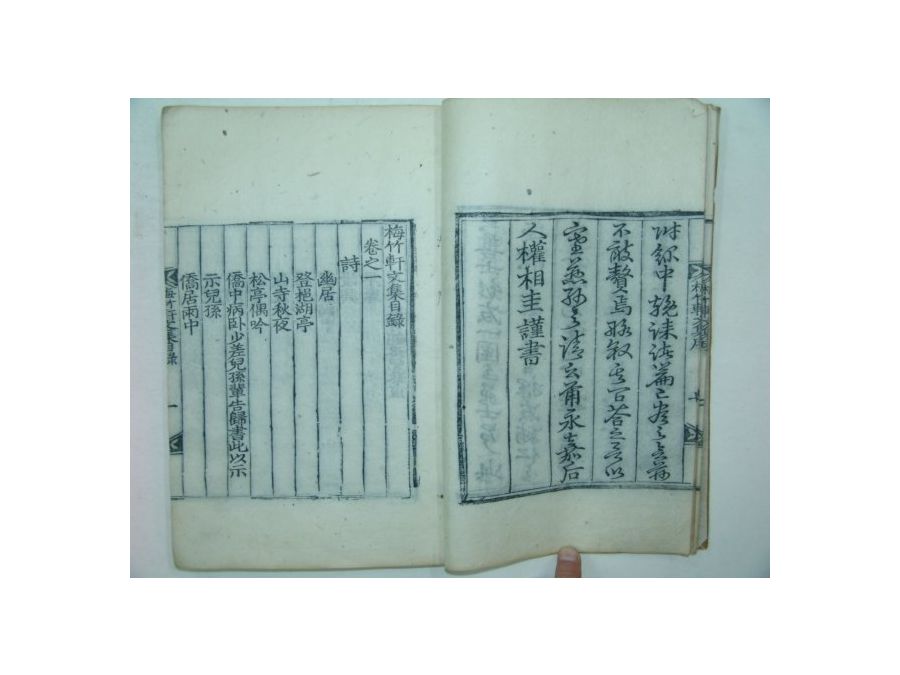 附錄中輓誄諸篇已盡之矣玆
不敢贅焉略敍其問答之言以
塞燕孫之請云爾永嘉后
人權相圭謹書
梅竹軒文集序
梅竹軒文集目錄
卷之一
詩
幽居
登挹湖亭
山寺秋夜
松亭偶吟
僑中病臥少差兒孫輩告歸書此以示
示兒孫
僑居雨中
梅竹軒文集目錄
一